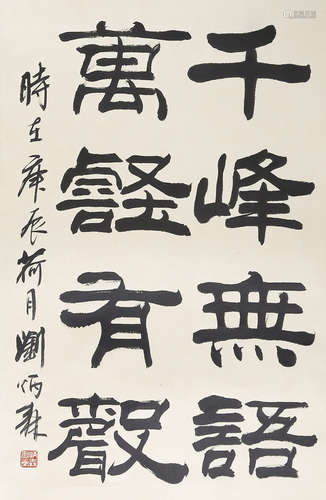 千峰無語
萬壑有聲
時在庚辰荷月劉炳森